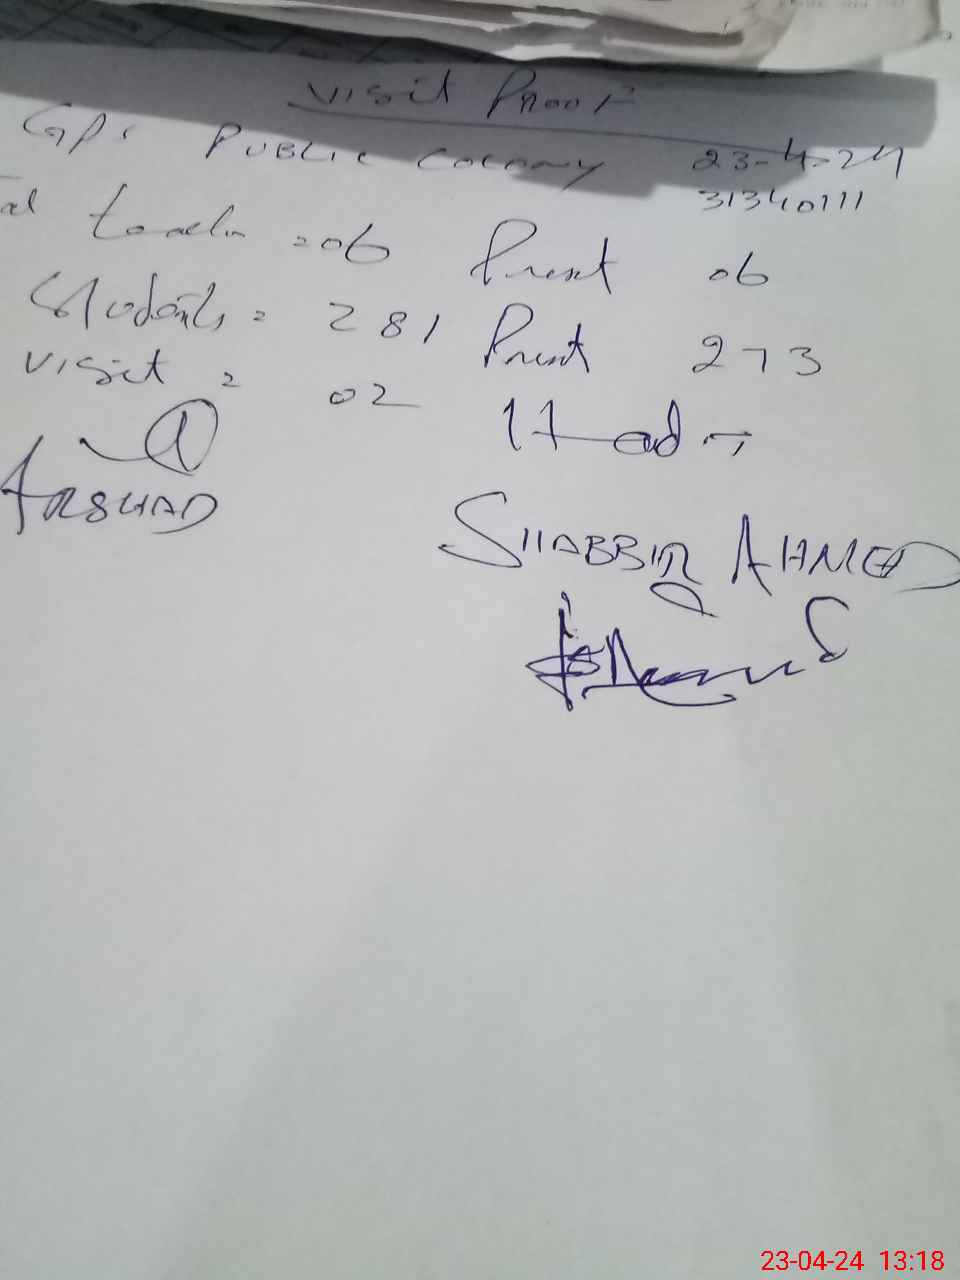 Visit Proof
GPS Public Colony 23-4-24
31340111
al teach = 06 Present 06
Students = 281 Present 273
Visit = 02 Head :-
ARSHAD
SHABBIR AHMED
23-04-24 13:18